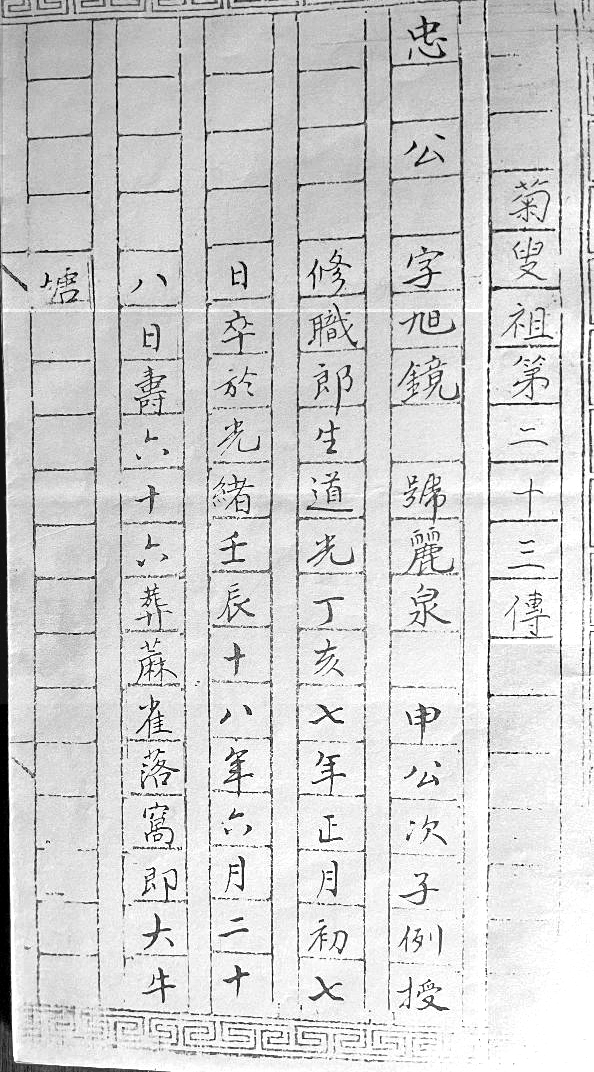 菊叟祖第二十三傳
忠公字旭鏡號麗泉申公次子例授
修職郎生道光丁亥七年正月初七
日卒於光緒壬辰十八年六月二十
八日壽六十六葬蔴雀落窩即大牛
塘